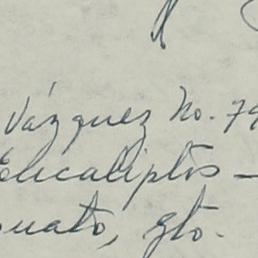 Vázquez No. 79
Eucaliptos -
uato, gto.